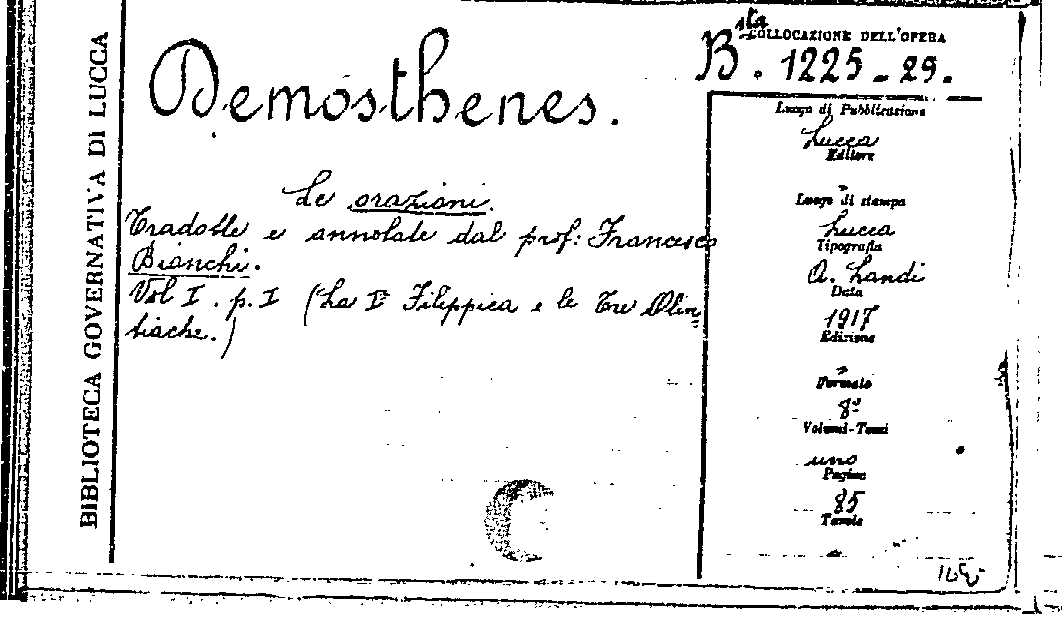 BIBLIOTECA GOVERNATIVA DI LUCCA
Demosthenes.
Le orazioni.
Tradotte e annotate dal prof: Francesco
Bianchi.
Vol I. p. I (La Iª Filippica e le Tre Olin=
tiache.)
COLLOCAZIONE DELL'OPERA
Bsta. 1225-29.
Luogo di Pubblicazione
Lucca
Editore
Luogo di stampa
Lucca
Tipografia
A. Landi
Data
1917
Edizione
Formato
8º
Volumi-Tomi
uno
Pagine
85
Tavole